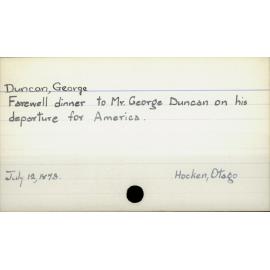 Duncan, George
Farewell dinner to Mr. George Duncan on his
departure for America.
July 12, 1873.
Hocken, Otago